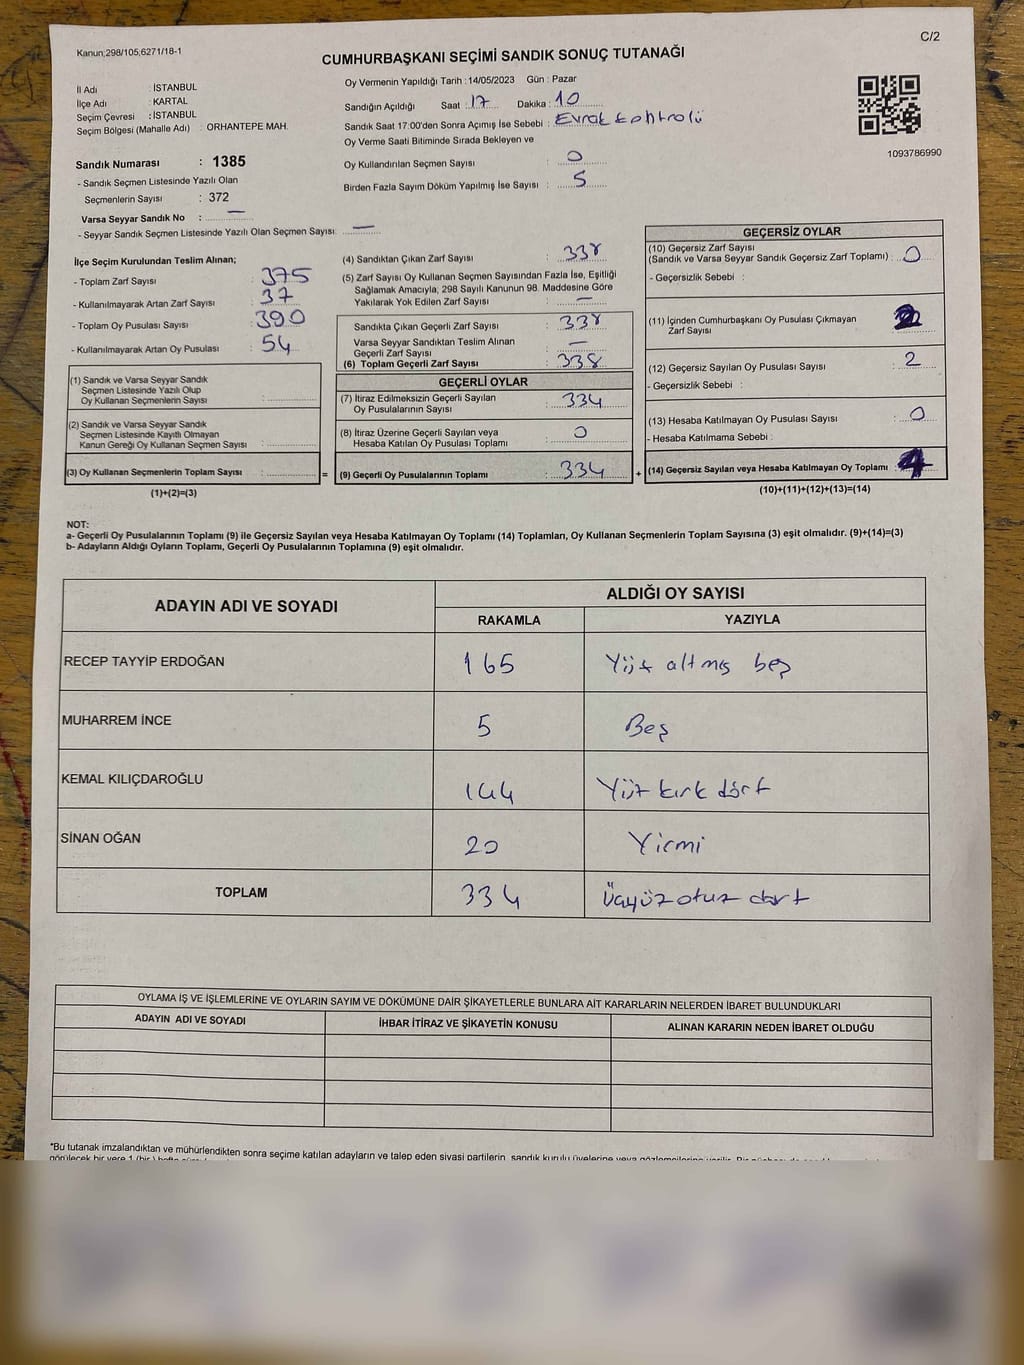 Kanun;298/105;6271/18-1
C/2
CUMHURBAŞKANI SEÇİMİ SANDIK SONUÇ TUTANAĞI
İl Adı : İSTANBUL
İlçe Adı : KARTAL
Seçim Çevresi : İSTANBUL
Seçim Bölgesi (Mahalle Adı) : ORHANTEPE MAH.
Sandık Numarası : 1385
- Sandık Seçmen Listesinde Yazılı Olan
Seçmenlerin Sayısı : 372
Varsa Seyyar Sandık No : —
- Seyyar Sandık Seçmen Listesinde Yazılı Olan Seçmen Sayısı: —
Oy Vermenin Yapıldığı Tarih : 14/05/2023 Gün : Pazar
Sandığın Açıldığı Saat : 17 Dakika : 10
Sandık Saat 17:00'den Sonra Açımış İse Sebebi : Evrak kontrolü
Oy Verme Saati Bitiminde Sırada Bekleyen ve
Oy Kullandırılan Seçmen Sayısı : 0
Birden Fazla Sayım Döküm Yapılmış İse Sayısı : 5
1093786990
İlçe Seçim Kurulundan Teslim Alınan;
- Toplam Zarf Sayısı : 375
- Kullanılmayarak Artan Zarf Sayısı : 37
- Toplam Oy Pusulası Sayısı : 390
- Kullanılmayarak Artan Oy Pusulası : 54
(1) Sandık ve Varsa Seyyar Sandık
Seçmen Listesinde Yazılı Olup
Oy Kullanan Seçmenlerin Sayısı :
(2) Sandık ve Varsa Seyyar Sandık
Seçmen Listesinde Kayıtlı Olmayan
Kanun Gereği Oy Kullanan Seçmen Sayısı :
(3) Oy Kullanan Seçmenlerin Toplam Sayısı :
(1)+(2)=(3)
(4) Sandıktan Çıkan Zarf Sayısı : 338
(5) Zarf Sayısı Oy Kullanan Seçmen Sayısından Fazla İse, Eşitliği
Sağlamak Amacıyla, 298 Sayılı Kanunun 98. Maddesine Göre
Yakılarak Yok Edilen Zarf Sayısı : —
Sandıkta Çıkan Geçerli Zarf Sayısı : 338
Varsa Seyyar Sandıktan Teslim Alınan
Geçerli Zarf Sayısı : —
(6) Toplam Geçerli Zarf Sayısı : 338
GEÇERLİ OYLAR
(7) İtiraz Edilmeksizin Geçerli Sayılan
Oy Pusulalarının Sayısı : 334
(8) İtiraz Üzerine Geçerli Sayılan veya
Hesaba Katılan Oy Pusulası Toplamı : 0
= (9) Geçerli Oy Pusulalarının Toplamı : 334 +
GEÇERSİZ OYLAR
(10) Geçersiz Zarf Sayısı
(Sandık ve Varsa Seyyar Sandık Geçersiz Zarf Toplamı) : 0
- Geçersizlik Sebebi :
(11) İçinden Cumhurbaşkanı Oy Pusulası Çıkmayan
Zarf Sayısı : 2
(12) Geçersiz Sayılan Oy Pusulası Sayısı : 2
- Geçersizlik Sebebi :
(13) Hesaba Katılmayan Oy Pusulası Sayısı : 0
- Hesaba Katılmama Sebebi :
(14) Geçersiz Sayılan veya Hesaba Katılmayan Oy Toplamı : 4
(10)+(11)+(12)+(13)=(14)
NOT:
a- Geçerli Oy Pusulalarının Toplamı (9) ile Geçersiz Sayılan veya Hesaba Katılmayan Oy Toplamı (14) Toplamları, Oy Kullanan Seçmenlerin Toplam Sayısına (3) eşit olmalıdır. (9)+(14)=(3)
b- Adayların Aldığı Oyların Toplamı, Geçerli Oy Pusulalarının Toplamına (9) eşit olmalıdır.
ADAYIN ADI VE SOYADI
ALDIĞI OY SAYISI
RAKAMLA YAZIYLA
RECEP TAYYİP ERDOĞAN 165 Yüz altmış beş
MUHARREM İNCE 5 Beş
KEMAL KILIÇDAROĞLU 144 Yüz kırk dört
SİNAN OĞAN 20 Yirmi
TOPLAM 334 Üçyüz otuz dört
OYLAMA İŞ VE İŞLEMLERİNE VE OYLARIN SAYIM VE DÖKÜMÜNE DAİR ŞİKAYETLERLE BUNLARA AİT KARARLARIN NELERDEN İBARET BULUNDUKLARI
ADAYIN ADI VE SOYADI İHBAR İTİRAZ VE ŞİKAYETİN KONUSU ALINAN KARARIN NEDEN İBARET OLDUĞU
*Bu tutanak imzalandıktan ve mühürlendikten sonra seçime katılan adayların ve talep eden siyasi partilerin, sandık kurulu üyelerine veya gözlemcilerine verilir.